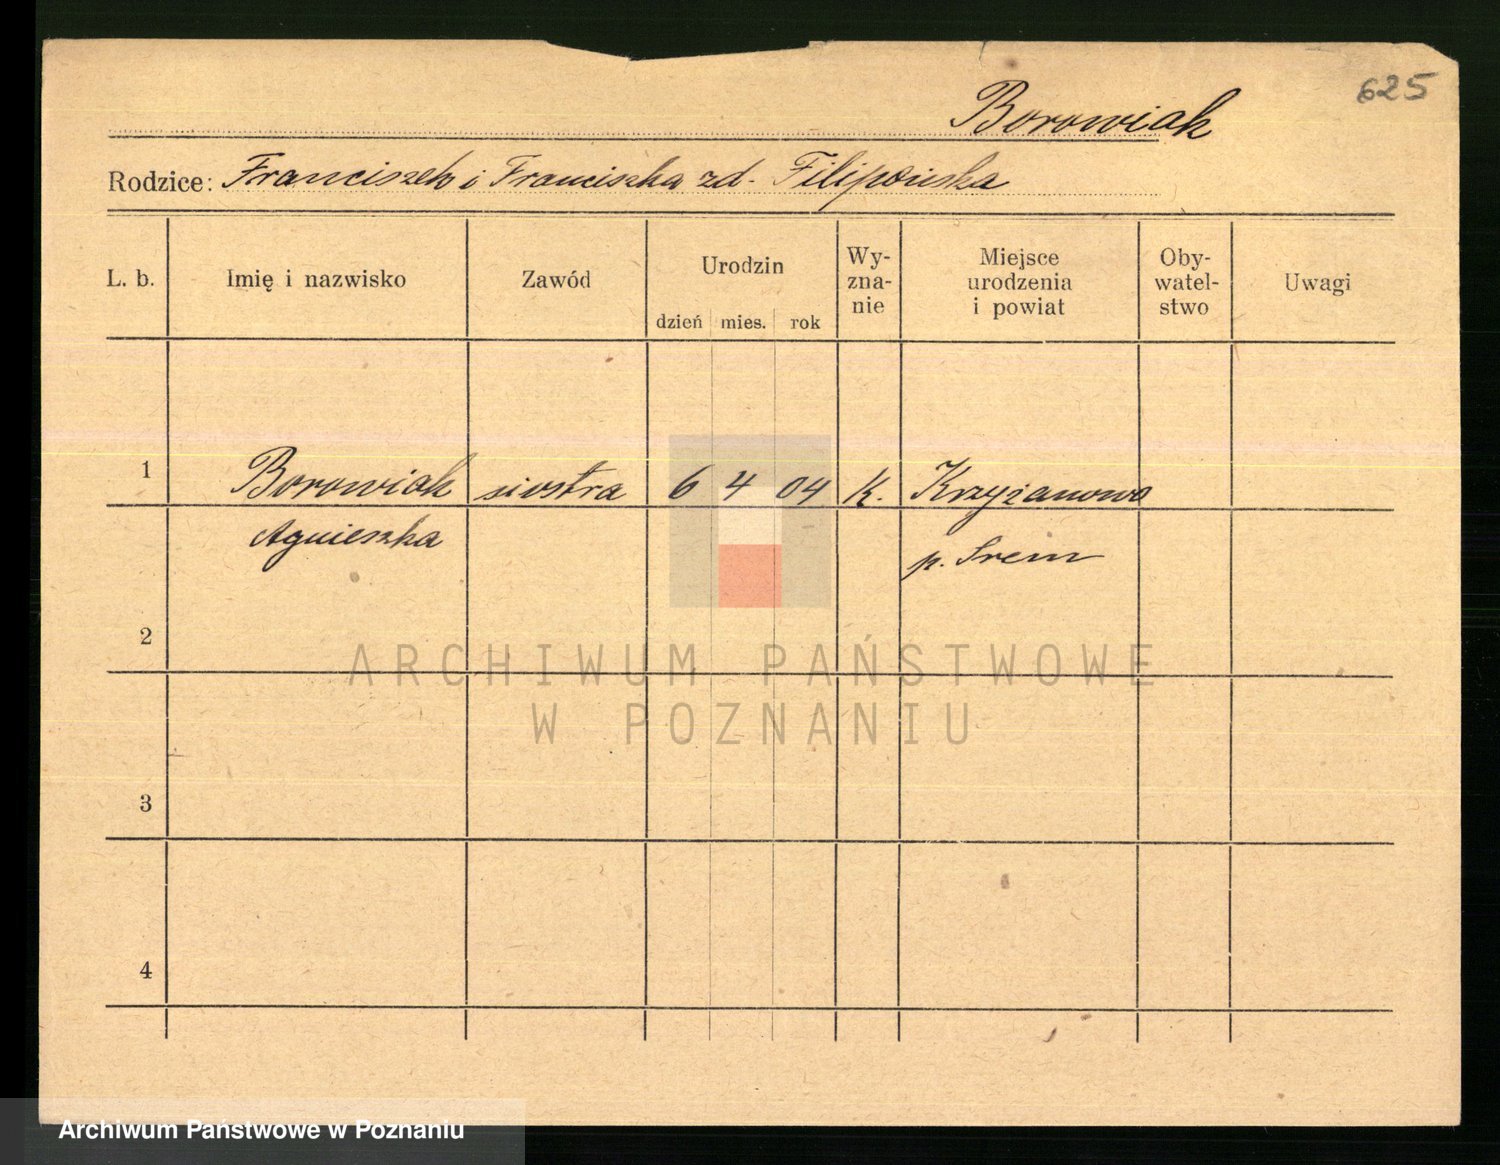 625
Borowiak
Rodzice: Franciszek i Franciszka zd. Filipowska
L. b. Imię i nazwisko Zawód Urodzin dzień mies. rok Wy-zna-nie Miejsce urodzenia i powiat Oby-watel-stwo Uwagi
1 Borowiak siostra 6 4 04 k. Krzyżanowo
Agnieszka p. Śrem
2
ARCHIWUM PAŃSTWOWE
W POZNANIU
3
4
Archiwum Państwowe w Poznaniu